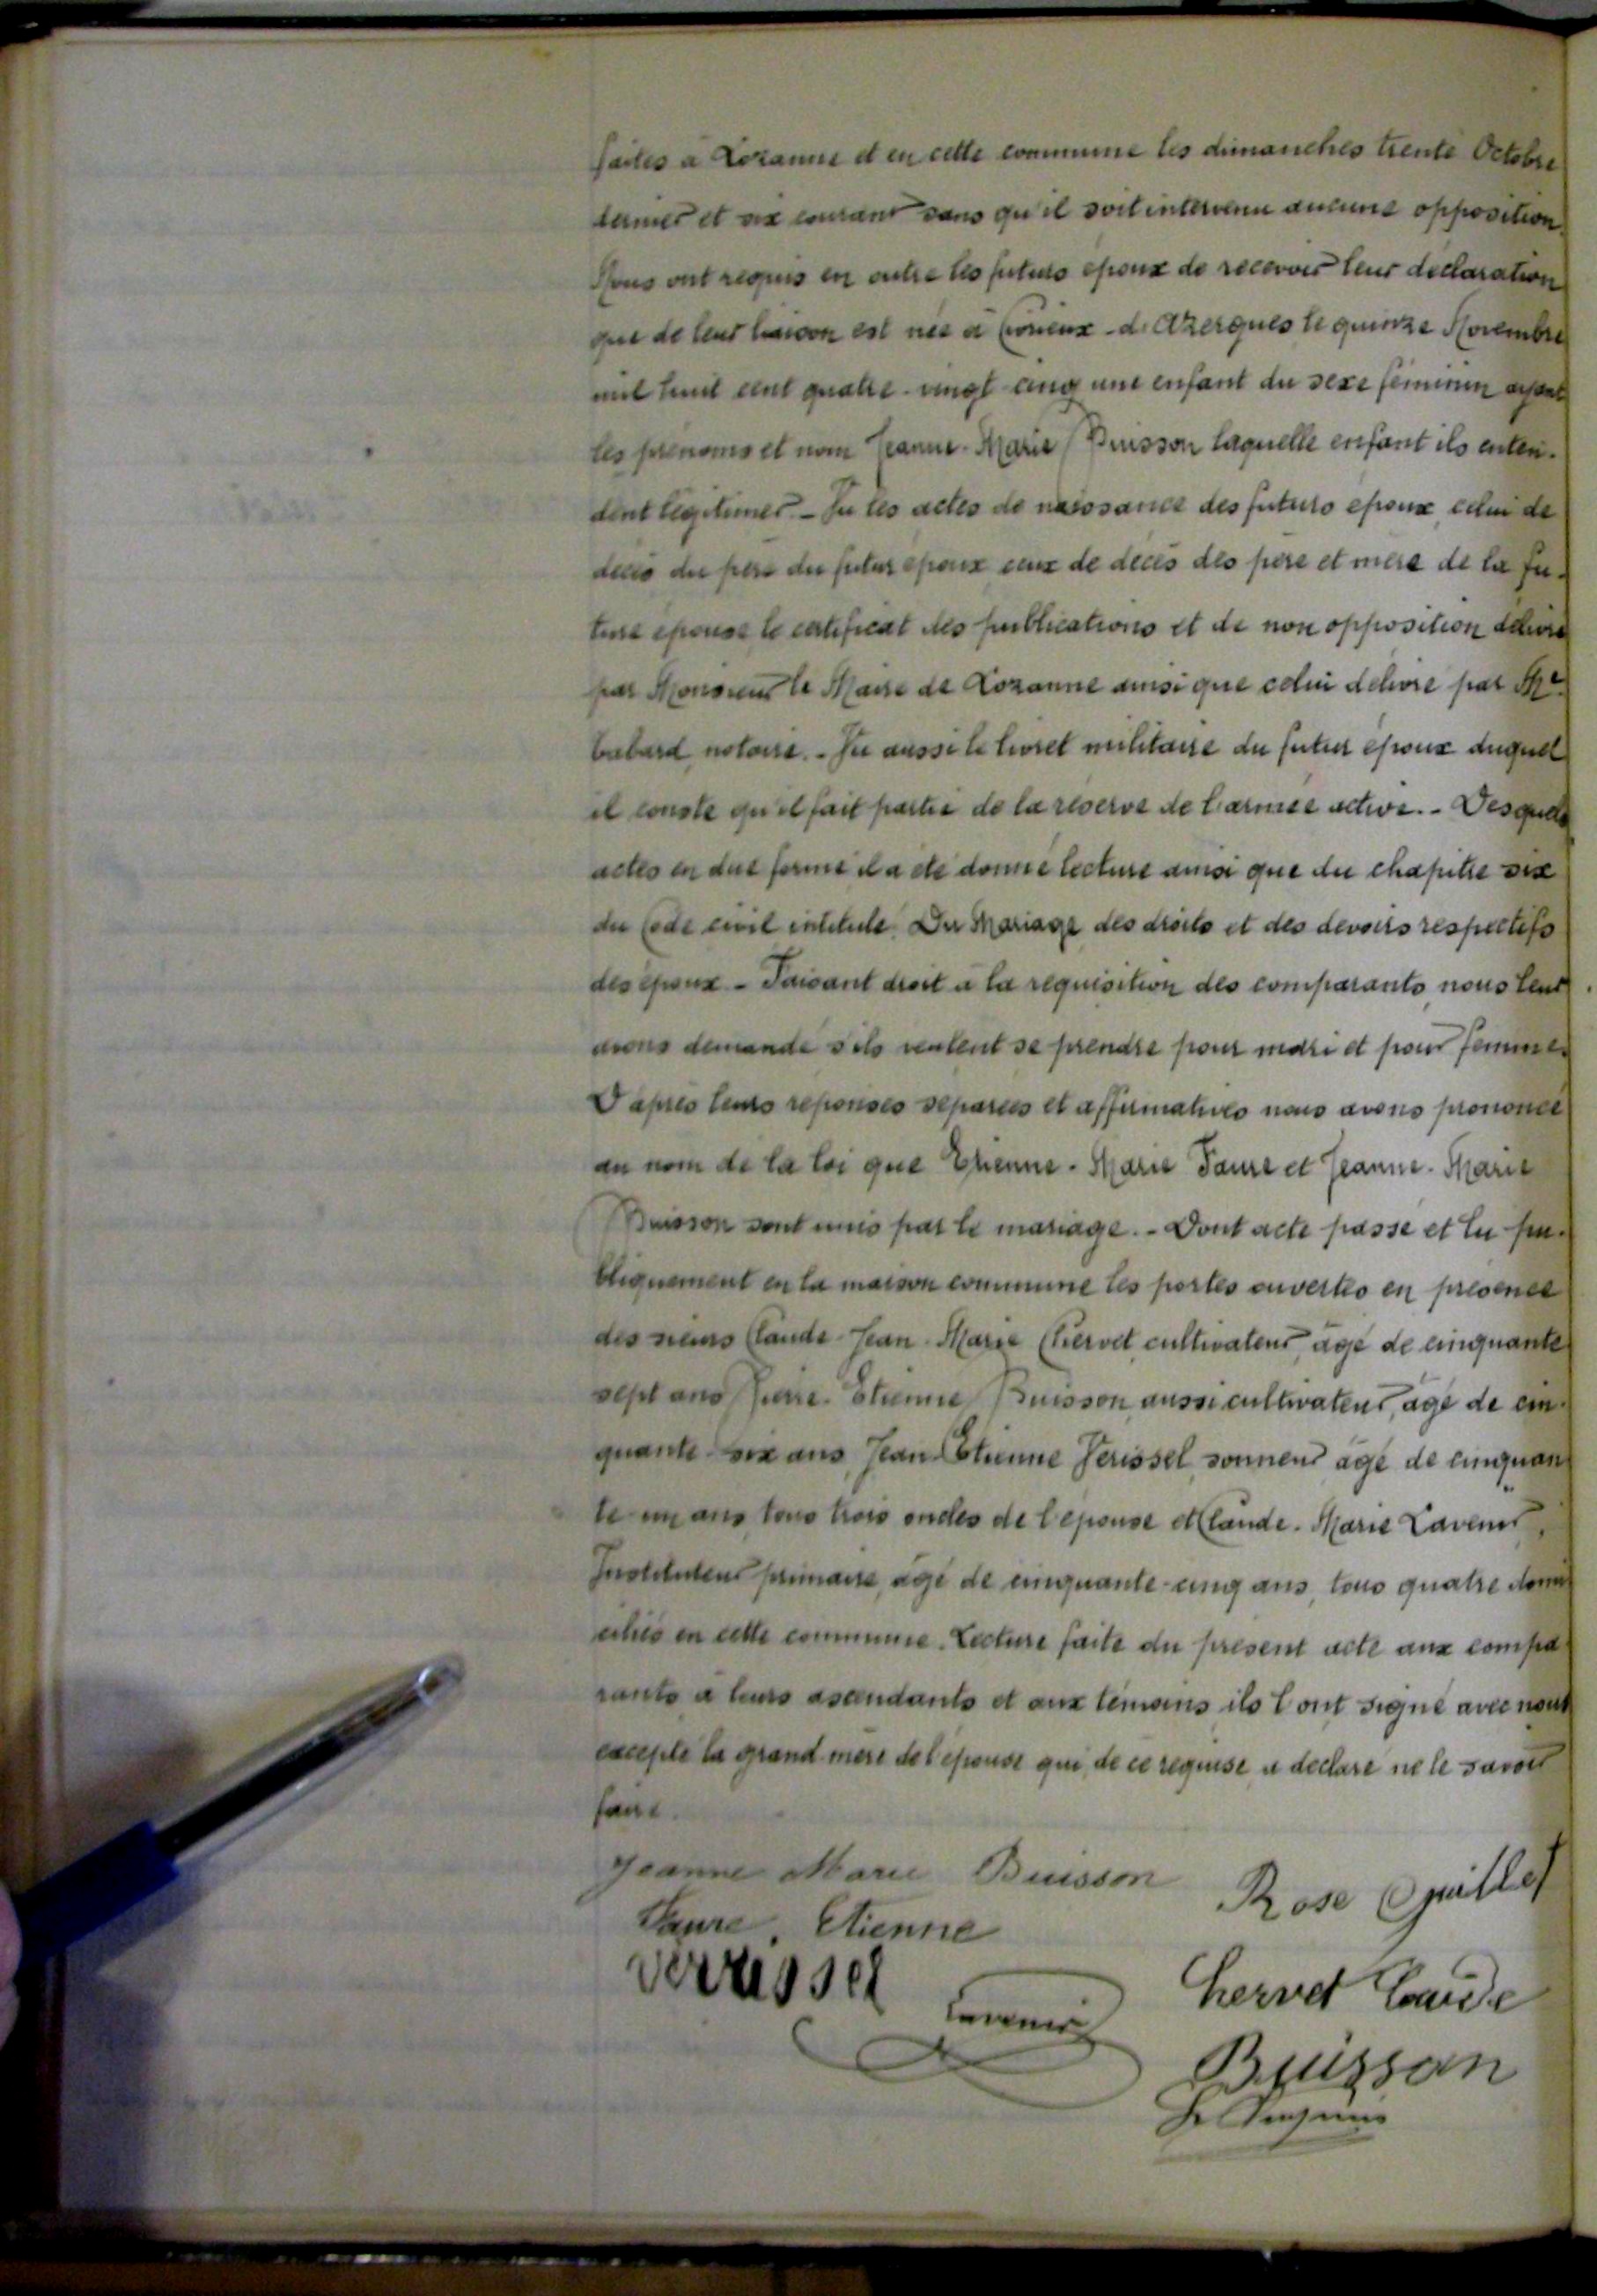 faites à Lozanne et en cette commune les dimanches trente Octobre
dernier et six courant sans qu'il soit intervenu aucune opposition.
Nous ont requis en outre les futurs époux de recevoir leur déclaration
que de leur liaison est née à Civrieux-d'Azergues le quinze Novembre
mil huit cent quatre-vingt cinq une enfant du sexe féminin ayant
les prénoms et nom Jeanne-Marie Buisson laquelle enfant ils enten-
dent légitimer - Vu les actes de naissance des futurs époux, celui de
décès du père du futur époux ceux de décès des père et mère de la fu-
ture épouse le certificat des publications et de non opposition délivré
par Monsieur le Maire de Lozanne ainsi que celui délivré par Me
notaire. - Vu aussi le livret militaire du futur époux duquel
il conste qu'il fait partie de la réserve de l'armée active. - Desquels
actes en due forme il a été donné lecture ainsi que du chapitre six
du Code civil intitulé Du Mariage des droits et des devoirs respectifs
des époux - Faisant droit à la requisition des comparants, nous leur
avons demandé s'ils veulent se prendre pour mari et pour femme.
D'après leurs réponses séparées et affirmatives nous avons prononcé
au nom de la loi que Etienne-Marie Faure et Jeanne-Marie
Buisson sont unis par le mariage. - Dont acte passé et lu pu-
bliquement en la maison commune les portes ouvertes en présence
des sieurs Claude-Jean-Marie Chervet, cultivateur, âgé de cinquante
sept ans Pierre-Etienne Buisson, aussi cultivateur, âgé de cin-
quante-six ans, Jean-Etienne Verissel, sonneur âgé de cinquan
te un ans tous trois oncles de l'épouse et Claude-Marie Lavenir,
Instituteur primaire, âgé de cinquante-cinq ans, tous quatre domi
ciliés en cette commune. Lecture faite du présent acte aux compa
rants à leurs ascendants et aux témoins ils l'ont signé avec nous
excepté la grand-mère de l'épouse qui, de ce requise a déclaré ne le savoir
faire.
Jeanne Marie Buisson Rose Guillet
Faure, Etienne
verrissel
Lavenir
Chervet Claude
Buisson